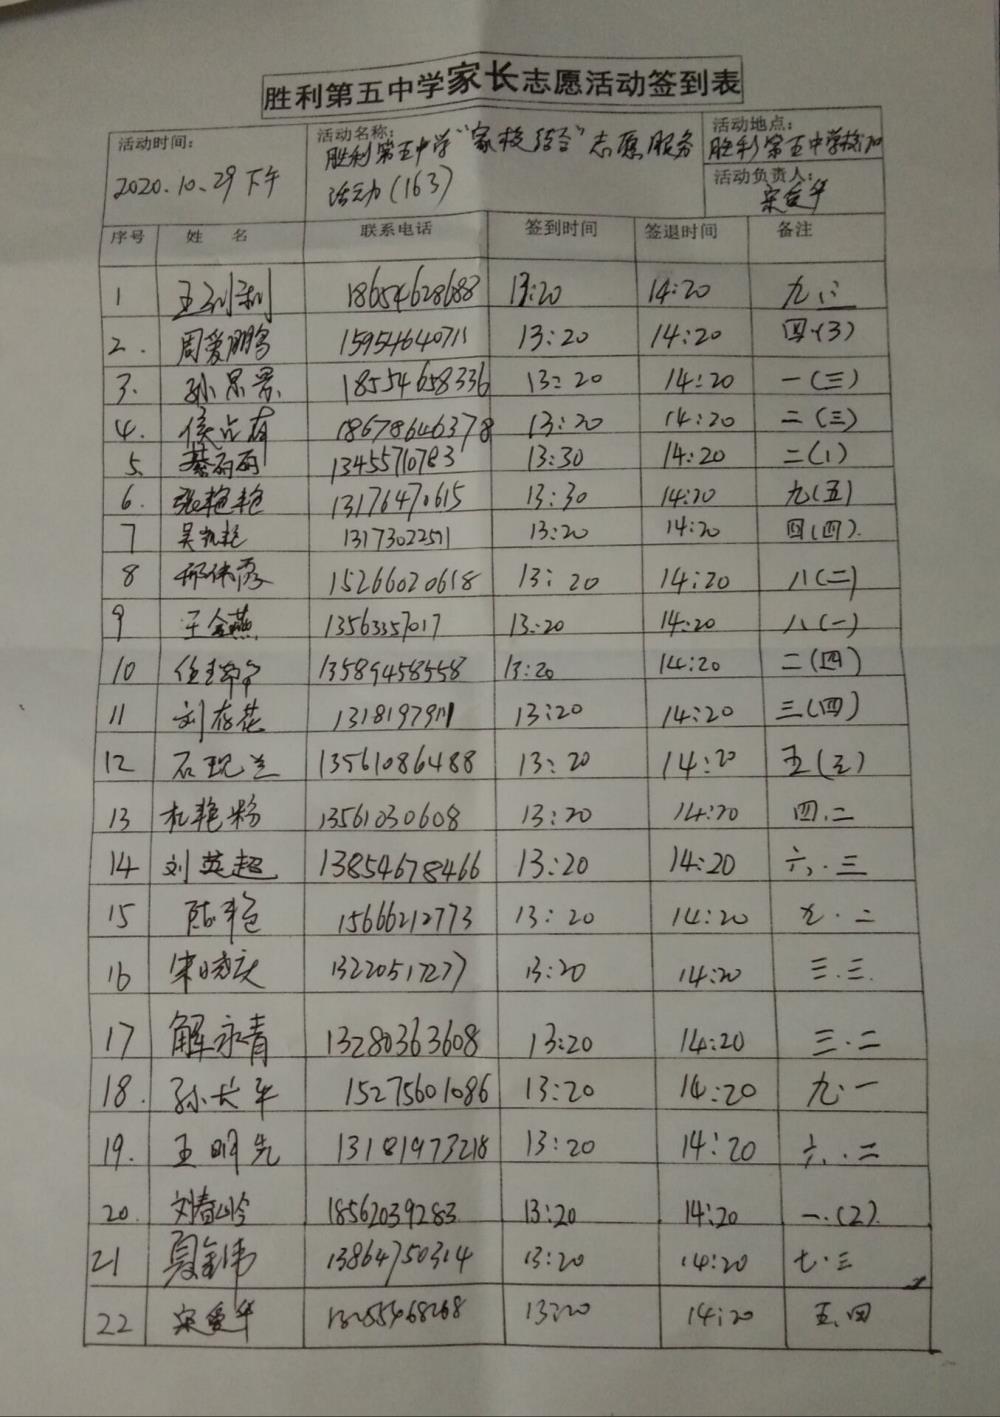 胜利第五中学家长志愿活动签到表
活动时间:
2020.10.29下午
活动名称:
胜利第五中学"家校结合"志愿服务
活动(163)
活动地点:
胜利第五中学校门口
活动负责人:
宋爱华
序号 姓 名 联系电话 签到时间 签退时间 备注
1 王利利 18654628688 13:20 14:20 九.二
2. 周爱鹏 15954640711 13:20 14:20 四.(3)
3. 孙思景 18554658336 13:20 14:20 一(三)
4. 侯占有 18678646378 13:20 14:20 二(三)
5. 蔡丽丽 13455710783 13:30 14:20 二(1)
6. 张艳艳 13176470615 13:30 14:20 九(五)
7 吴凯艳 13173022511 13:20 14:20 四(四).
8 15266020618 13:20 14:20 八(二)
9 王金燕 13563357017 13:20 14:20 八(一)
10 13589458558 13:20 14:20 二(四)
11 刘存花 1318197911 13:20 14:20 三(四)
12 石现兰 13561086488 13:20 14:20 五(三)
13 札艳粉 13561030608 13:20 14:20 四.二
14 刘英超 13854678466 13:20 14:20 六.三
15 陈艳 15666212773 13:20 14:20 九.二
16 宋晓庆 13220517277 13:20 14:20 三.三.
17 解永青 13280363608 13:20 14:20 三.二
18. 孙长军 15275601086 13:20 14:20 九.一
19. 王明先 13181973218 13:20 14:20 六.二
20. 刘春岭 18562039283 13:20 14:20 一.(2).
21 夏金伟 13864750314 13:20 14:20 七.三
22 宋爱华 13255468268 13:20 14:20 五.四